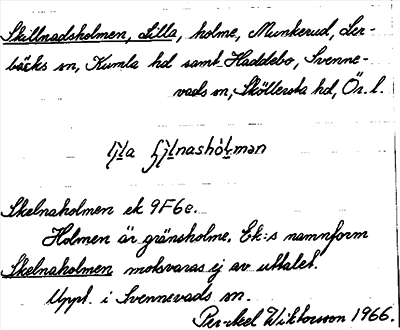 Skillnadsholmen, Lilla, holme, Munkerud, Ler-
bäcks sn, Kumla hd samt Haddebo, Svenne-
vads sn, Sköllersta hd, Ör. l.
Skelnaholmen ek 9F6e.
Holmen är gränsholme. Ek:s namnform
Skelnaholmen motsvaras ej av uttalet.
Uppt. i Svennevads sn.
Per-Axel Wiktorsson 1966.